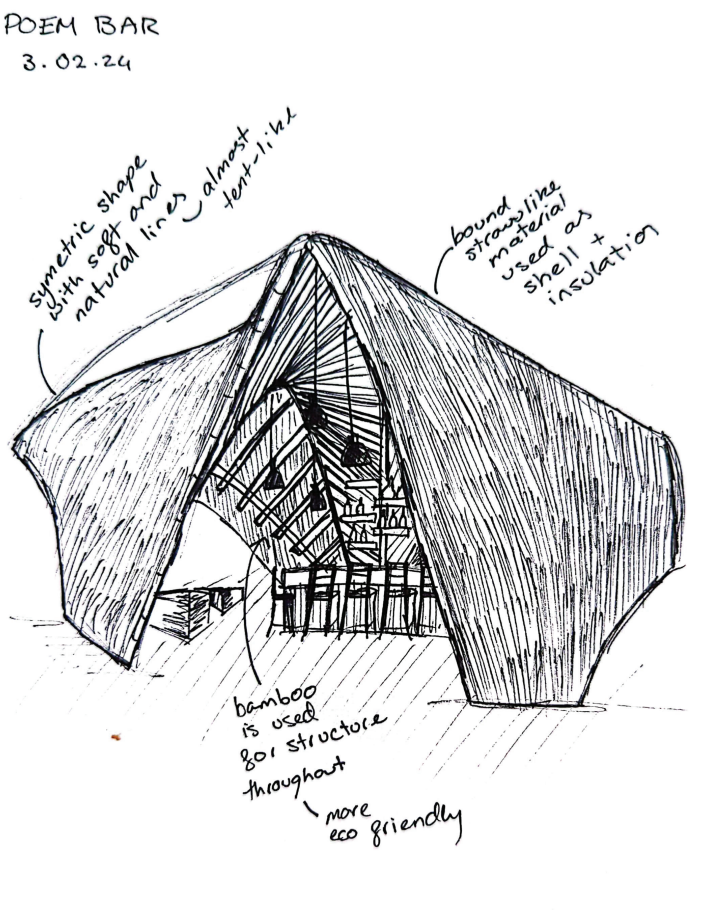 POEM BAR
3.02.24
symetric shape
with soft and
natural lines
almost
tent-like
bound
strawlike
material
used as
shell +
insulation
bamboo
is used
for structure
throughout
more
eco friendly